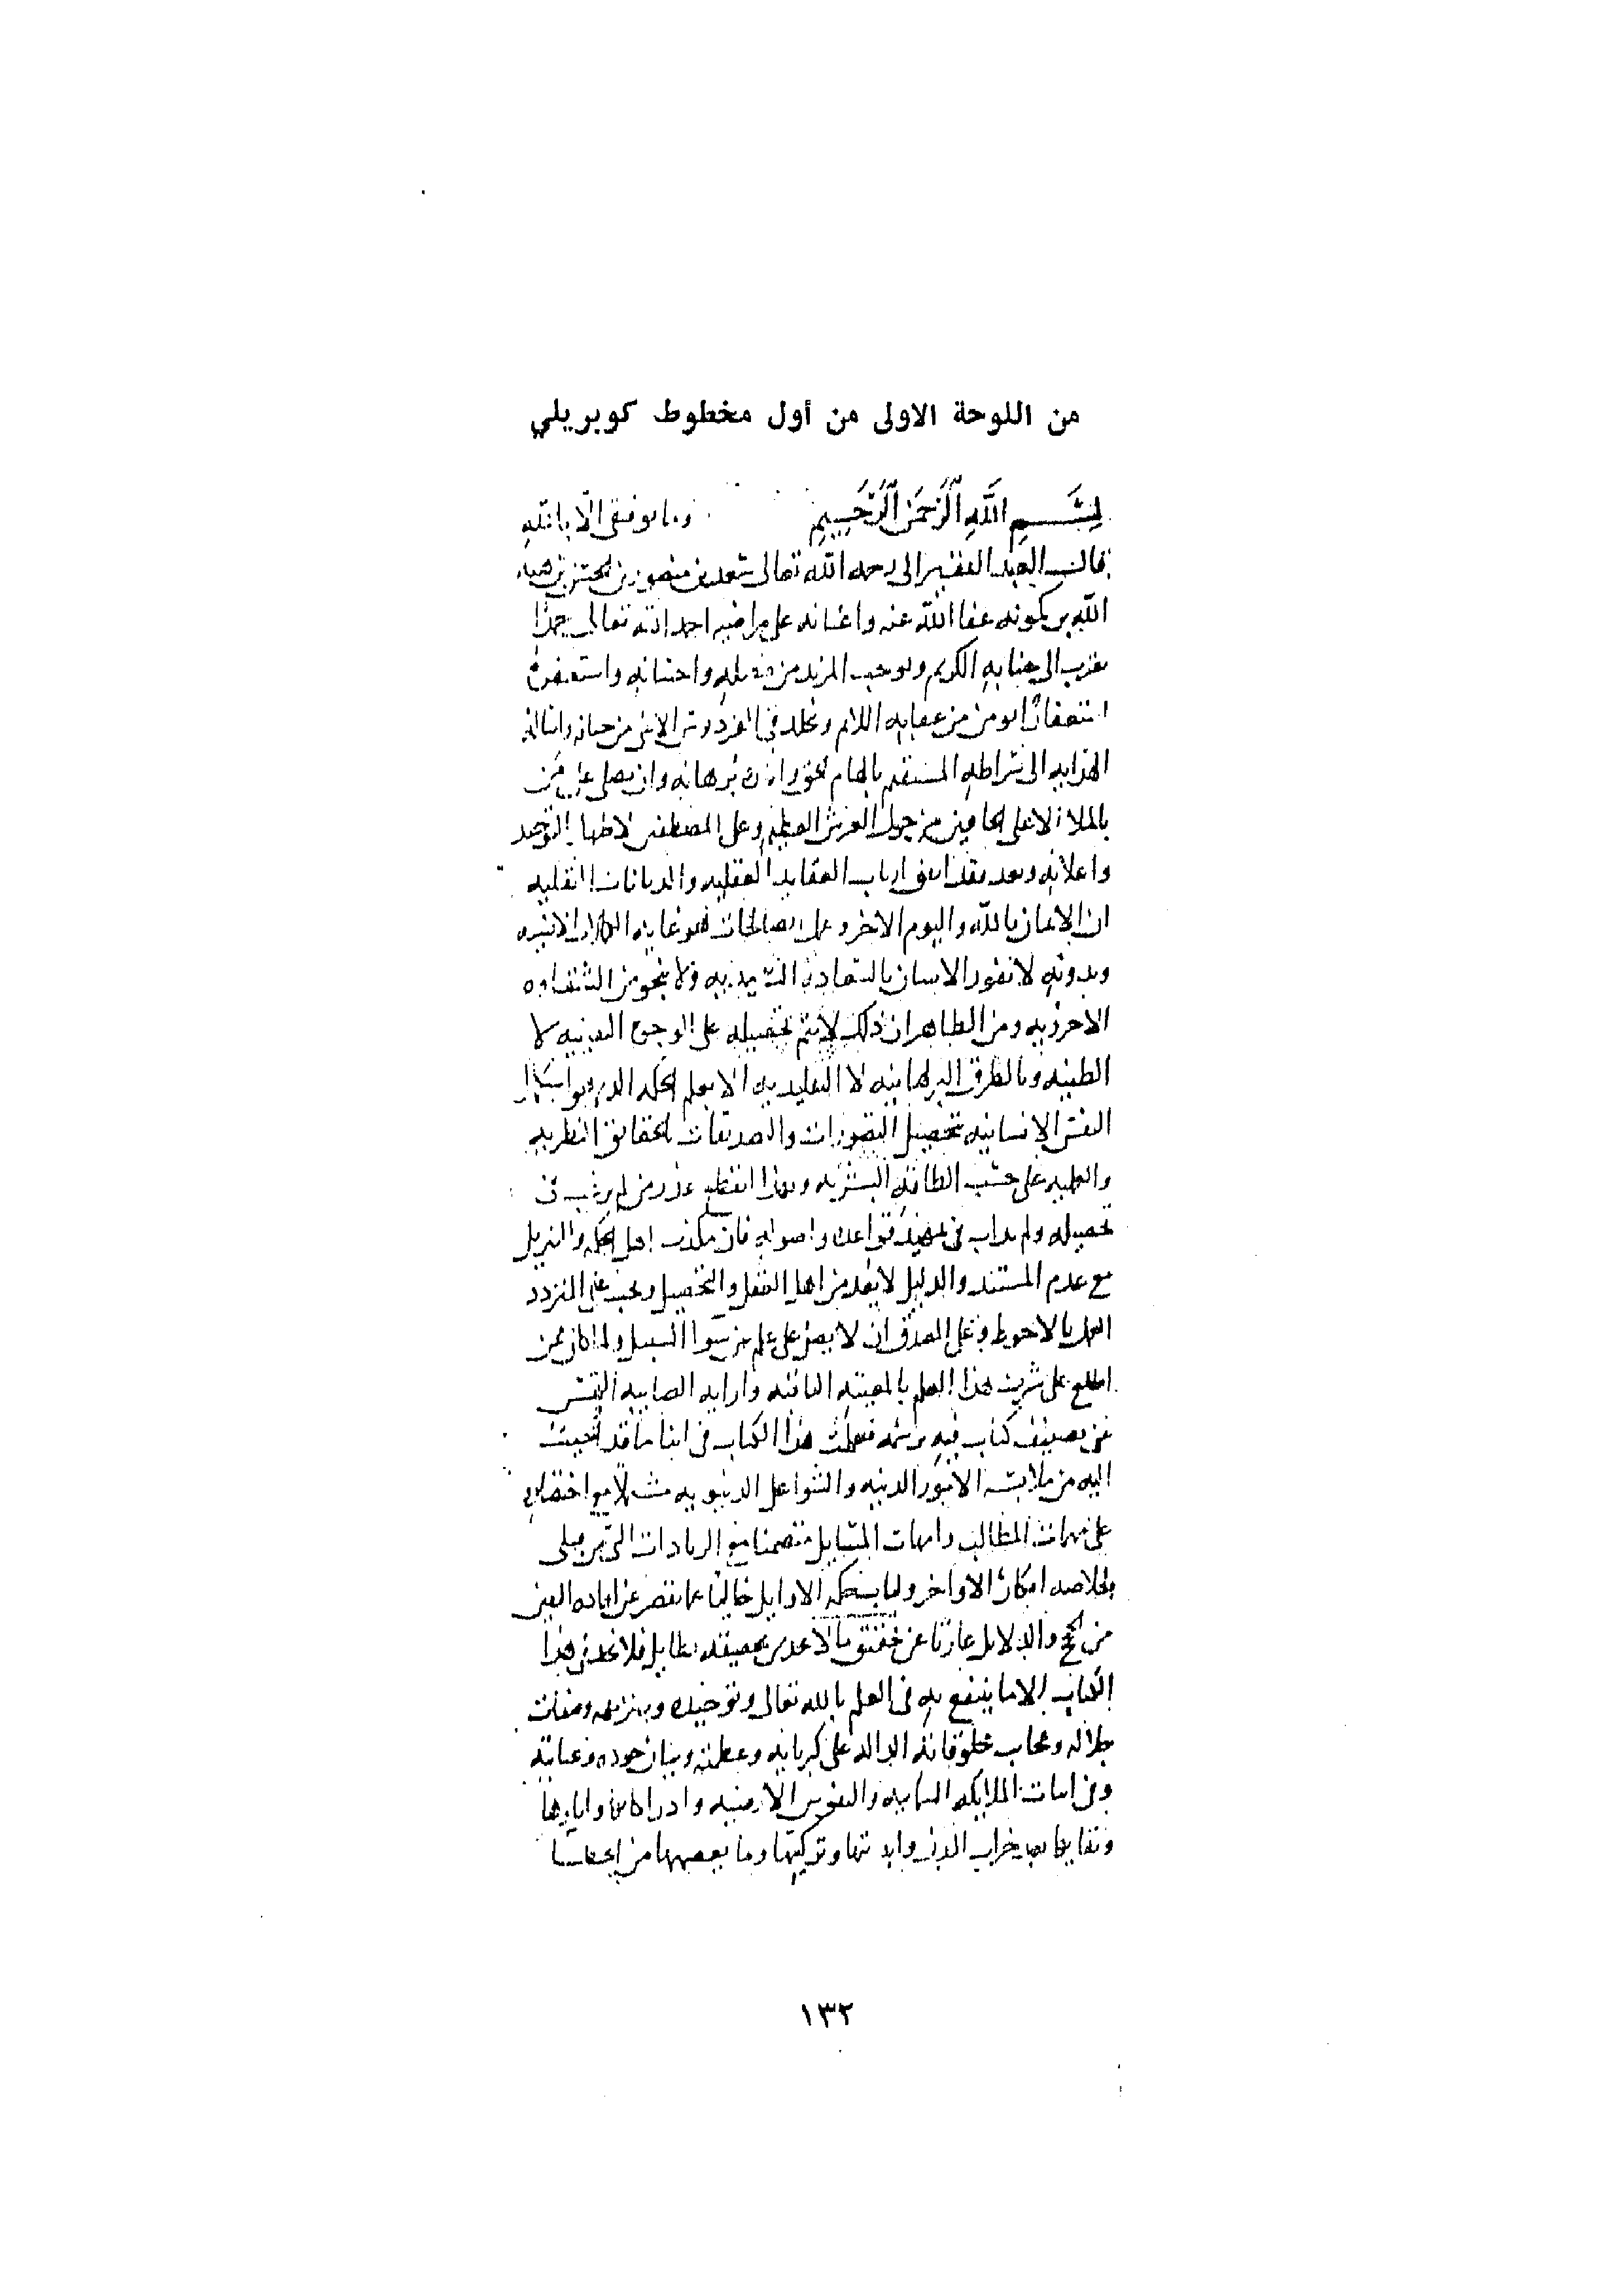 من اللوحة الاولى من أول مخطوط كوبريلي
بسم الله الرحمن الرحيم وما توفيقي الا بالله
قال العبد الفقير الى رحمة الله تعالى سعد بن منصور بن الحسن بن هبة
الله بن كمونه عفا الله عنه واعانه على مراضيه احمد الله تعالى حمدًا
يقرب الى جنابه الكريم ويوجب المزيد من فضله واحسانه واستغفره
استغفارًا يومن من عقابه الاليم ويخلد في الفردوس الاعلى من جنانه واساله
الهدايه الى صراطه المستقيم بالهام الحق وانارة برهانه وان يصلي على من
بالملا الاعلى الحافين من حول العرش العظيم وعلى المصطفين لاظهار التوحيد
واعلانه وبعد فقد اتفق ارباب العقايد العقليه والديانات النقليه
ان الايمان بالله واليوم الاخر وعمل الصالحات هو غايه الكمالات الانسيه
وبدونه لا يفوز الانسان بالسعادة السرمديه ولا ينجو من الشقاوه
الاخرويه ومن الظاهر ان ذلك لا يتم تحصيله على الوجوه اليقينيه لا
الظنيه وبالطرق البرهانيه لا التقليديه الا بعلم الحكمه الذي هو استكمال
النفس الانسانيه بتحصيل التصورات والتصديقات بالحقائق النظريه
والعمليه على حسب الطاقه البشريه وبهذا انقطع عذر من لم يرغب في
تحصيله ولم يداب في تمهيد قواعده واصوله فان مكذب اهل الحكمه والتنزيل
مع عدم المستند والدليل لا يعد من اهل العقل والتحصيل ويجب على المتردد
العمل بالاحوط وعلى المصدق ان لا يصر على علم عن سوا السبيل ولما كان ممن
اطلع على شريف هذا العلم بالمعيته الثاقبه وارايه الصايبه التمس
مني تصنيف كتاب فيه برسمه فعملت هذا الكتاب في اثنا ما قد الجيت
اليه من ملابسة الامور الدنيه والشواغل الدنيويه مشتملا مع اختصاره
على مهمات المطالب وامهات المسايل متضمنا مع الزيادات التي من قبلي
بخلاصه افكار الاواخر ولباب حكمة الاوايل خاليًا عما يقصر عن افاده اليقين
من الحجج والدلايل عاريًا عن تحقيق ما لا يجدي تحقيقه بطايل فلا تجد في هذا
الكتاب الا ما ينتفع به في العلم بالله تعالى وتوحيده وتنزيهه وصفات
جلاله وعجايب مخلوقاته الداله على كبريايه وعظمته وبيان جوده وعنايته
وفي اثبات الملايكه السمايه والنفوس الارضيه وادراكاتها واثارها
وبقايها بعد خراب البدن وابديتها وتزكيتها وما يعصمها من
١٣٢